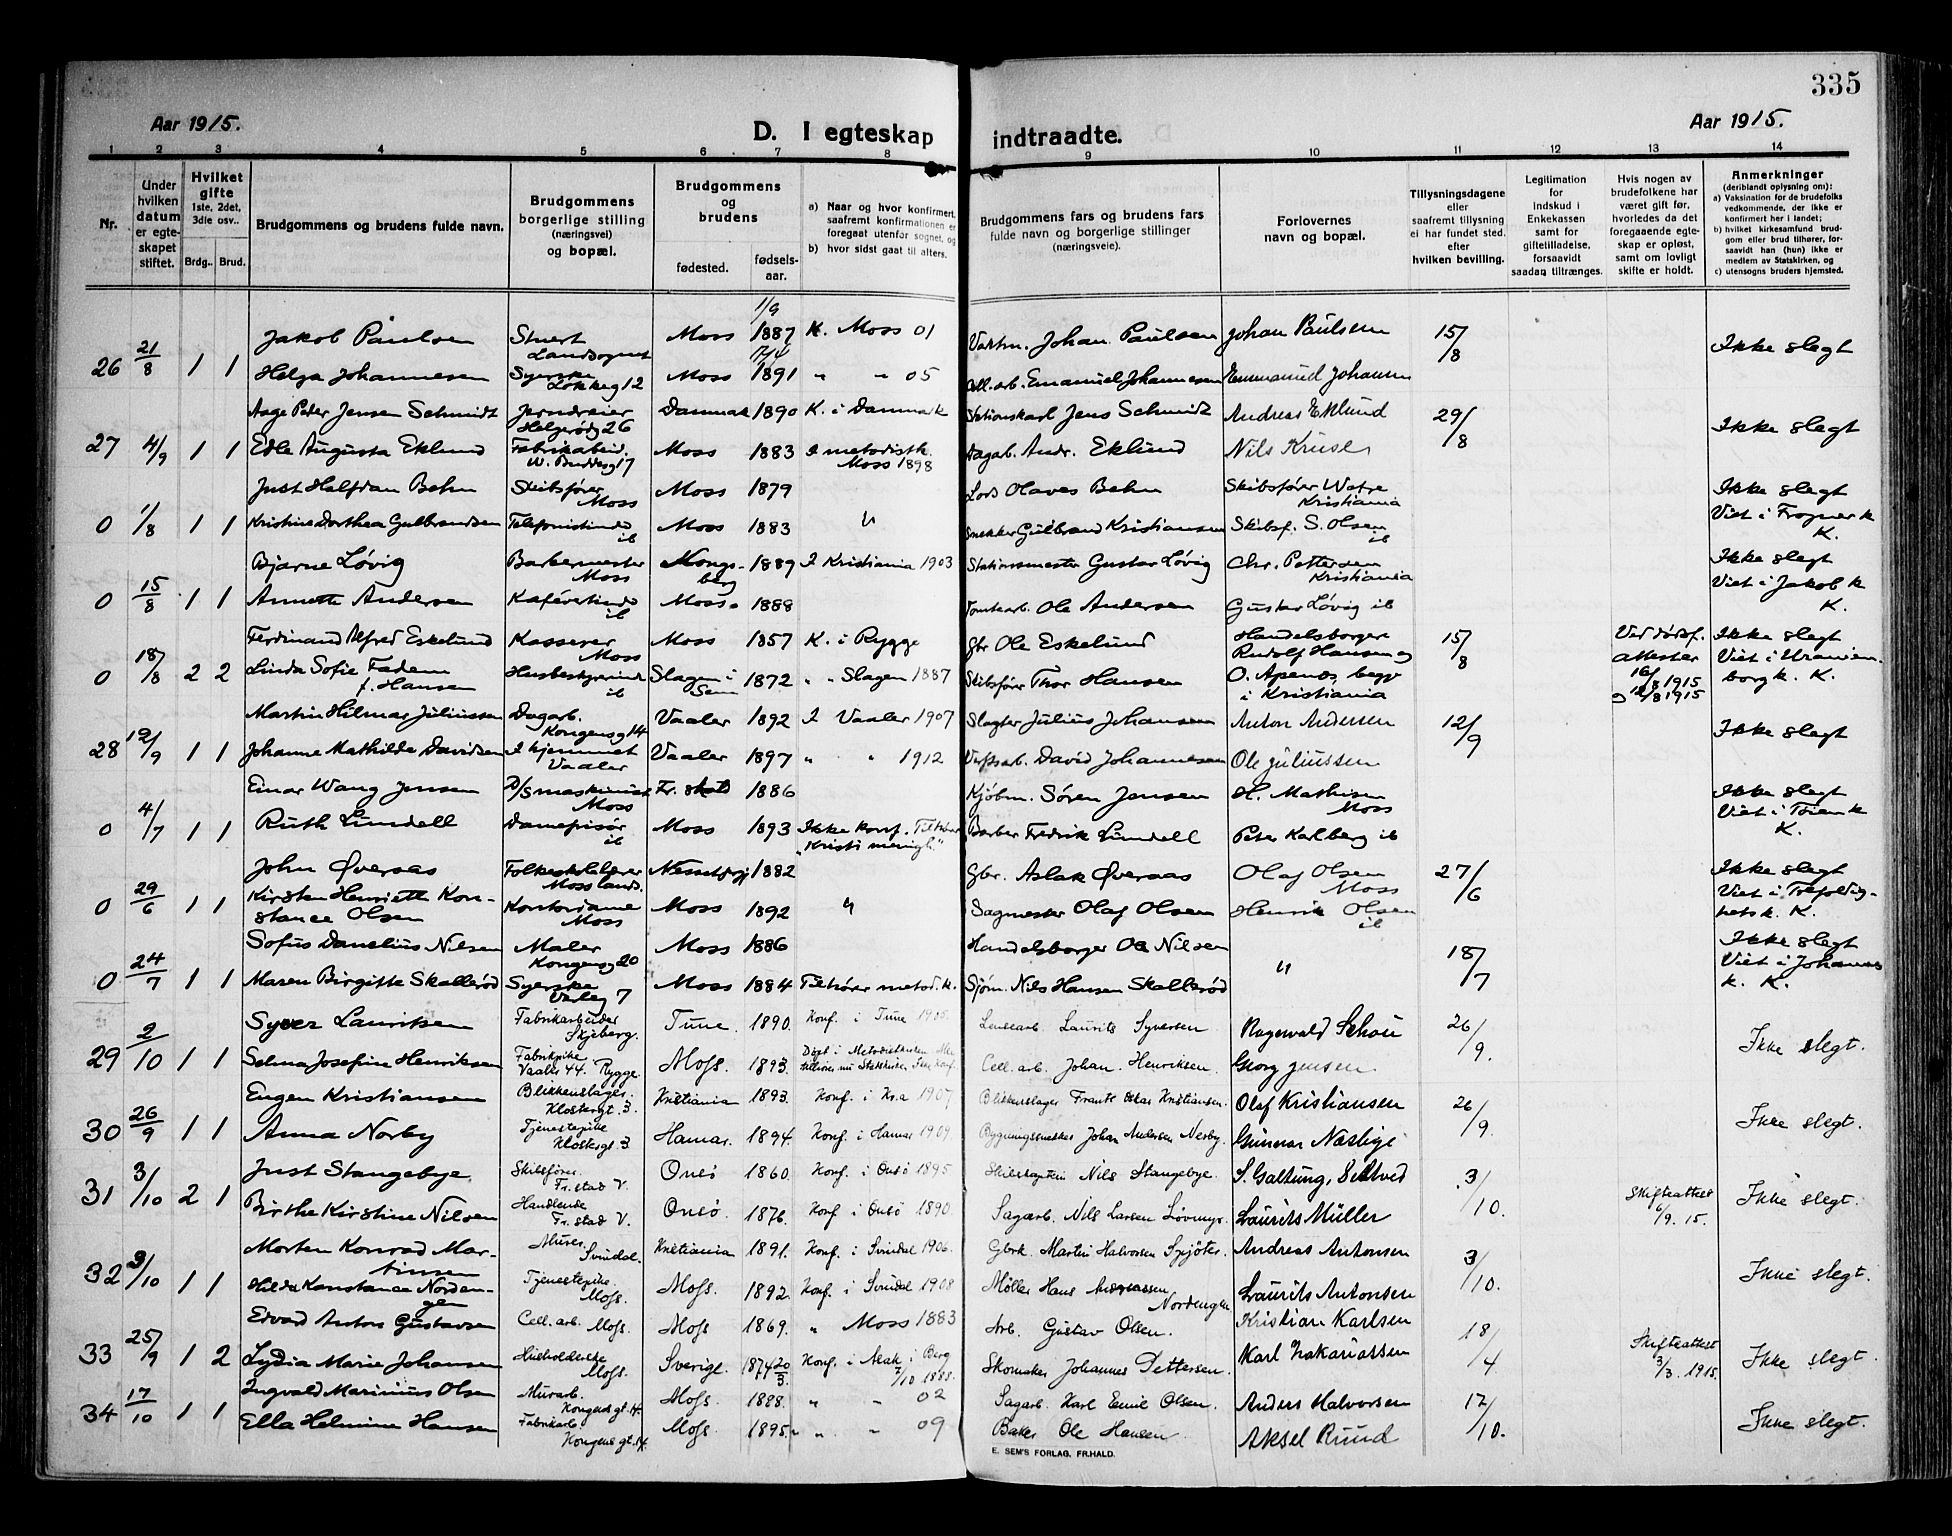 335
Aar 1915.
D. I egteskap indtraadte.
Aar 1915.
1 2 3 4 5 6 7 8 9 10 11 12 13 14
Nr.
Under hvilken datum er egteskapet stiftet.
Hvilket gifte 1ste, 2det, 3die osv..
Brdg.. Brud.
Brudgommens og brudens fulde navn.
Brudgommens borgerlige stilling (næringsvei) og bopæl.
Brudgommens og brudens
fødested. fødselsaar.
a) Naar og hvor konfirmert, saafremt konfirmationen er foregaat utenfor sognet, og
b) hvor sidst gaat til alters.
Brudgommens fars og brudens fars fulde navn og borgerlige stillinger (næringsveie).
Forlovernes navn og bopæl.
Tillysningsdagene eller saafremt tillysning ei har fundet sted. efter hvilken bevilling.
Legitimation for indskud i Enkekassen samt for giftetilladelse, forsaavidt saadan tiltrænges.
Hvis nogen av brudefolkene har været gift før, hvorledes da det foregaaende egteskap er opløst, samt om lovligt skifte er holdt.
Anmerkninger (deriblandt oplysning om):
a) Vaksination for de brudefolks vedkommende, der ikke er konfirmert her i landet;
b) hvilket kirkesamfund brudgom eller brud tilhører, forsaavidt han (hun) ikke er medlem av Statskirken, og
c) utensogns bruders hjemsted.
1/9
Jakob Paulsen Stuert Landsognet Moss 1887 K. Moss 01 Johan Paulsen Johan Paulsen 15/8 Ikke slegt
26 21/8 1 1 Helga Johannesen Syerske Løkkeg 12 Moss 1891 " " 05 Cell. arb. Emanuel Johannesen Emmanuel Johansen
Aage Peter Jensen Schmidt Jerndreier Helgerødg 26 Danmark 1890 K. i Danmark Stationskarl Jens Schmidt Andreas Eklund 29/8 Ikke slegt
27 4/9 1 1 Edle Augusta Eklund Fabrikarbeid. 17 Moss 1883 I metodistk. Moss 1898 Dagarb. Andr. Eklund Nils Kruse
Just Halfdan Behn Skibsfører Moss Moss 1879 Lods Olaves Behn Skibsfører Kristiania Ikke slegt
0 1/8 1 1 Kristine Dorthea Gulbrandsen Telefonistinde ib Moss 1883 " Snekker Gulbrand Kristiansen Skibsf. S. Olsen ib Viet i Frogner k K.
Bjarne Løvig Barbermester Moss Kongsberg 1889 I Kristiania 1903 Stationsmester Gustav Løvig Chr. Pettersen Kristiania Ikke slegt
0 15/8 1 1 Annette Andersen Kafévertinde ib Moss 1888 Tomtearb. Ole Andersen Gustav Løvig ib Viet i Jakob k K.
Ferdinand Alfred Eskelund Kasserer Moss Moss 1857 K. i Rygge Gbr Ole Eskelund Handelsborger Rudolf Hansen og 15/8 Ved dødsf. attester Ikke slegt
0 18/8 2 2 Linda Sofie Fadum f. Hansen Husbestyrerinde ib Slagen i Sem 1872 " " Slagen 1887 Skibsfører Thor Hansen O. Apenes, begge i Kristiania 16/8 1915 og /8 1915 Viet i Uranienborg k. K.
Martin Hilmar Juliussen Dagarb. Kongensg 14 Vaaler 1892 I Vaaler 1907 Slagter Julius Johansen Anton Andersen 12/9 Ikke slegt
28 12/9 1 1 Johanne Mathilde Davidsen I hjemmet Vaaler Vaaler 1897 " " 1912 Verftsarb. David Johannesen Ole Juliussen
Einar Wang Jensen D/S maskinist Moss Fr. stad 1886 Kjøbm. Søren Jensen H. Mathisen Moss Ikke slegt
0 4/7 1 1 Ruth Lundell Damefrisør ib Moss 1893 Ikke konf. Tilhører "Kristi menigh." Barber Fredrik Lundell Peter Karlberg ib Viet i Tøien k K.
John Øveraas Folkeskolelærer Moss lands. Nesset 1882 Gbr. Aslak Øveraas Olaf Olsen Moss 27/6 Ikke slegt
0 29/6 1 1 Kirsten Henriette Konstance Olsen Kontordame Moss Moss 1892 " Sagmester Olaf Olsen Henrik Olsen ib Viet i Trefoldighetsk. K.
Sofus Danelius Nilsen Maler Kongensg 20 Moss 1886 Handelsborger Ole Nilsen 18/7 Ikke slegt
0 24/7 1 1 Maren Birgitte Skallerød Syerske Varleg 7 Moss 1884 Tilhører metod. k. Sjøm. Nils Hansen Skallerød " Viet i Johannes k. K.
Syver Lauritsen Fabrikarbeider Skjeberg. Tune. 1890. Konf. i Tune 1905. Lensearb. Laurits Syversen Ragnvald Schou 26/9. Ikke slegt.
29 2/10 1 1 Selma Josefine Henriksen Fabrikpike Vaaler 44. Rygge Moss. 1893. Døpt i Metodistkirken Cell. arb. Johan Henriksen. Georg Jensen
Eugen Kristiansen Blikkenslager. Klostergt. 3. Kristiania 1893. Konf. i Kr.a 1907 Blikkenslager Frants Oskar Kristiansen. Olaf Kristiansen 26/9. Ikke slegt.
30 26/9 1 1 Anna Norby Tjenestepike Klostergt. 3 Hamar. 1894. Konf. i Hamar 1909. Bygningssnekker Johan Andersen Nerby. Gunnar Næslige
Just Stangebye Skibsfører. Fr. stad V. Onsø 1860. Konf. i Onsø 1895 Skibskaptein Nils Stangebye. S. Galtung, Seltved 3/10. Ikke slegt.
31 3/10 2 1 Birthe Kirstine Nilsen Handlende Fr. stad V. Onsø. 1876. Konf. i Onsø 1890 Sagarb. Nils Larsen Løvmyr. Laurits Müller Skifteattest 6/9. 15.
Morten Konrad Martinsen Murer. Svindal. Kristiania 1891. Konf. i Svindal 1906. Gbrk. Martin Halvorsen Spjøter. Andreas Antonsen 3/10. Ikke slegt.
32 3/10 1 1 Hilda Konstance Nordengen Tjenestepike. Moss. Moss. 1892. Konf. i Svindal 1908 Møller Hans Andreassen Nordengen Laurits Antonsen
Edvard Anton Gustavsen Cell. arb. Moss. Moss 1869. " Moss 1883 Arb. Gustav Olsen. Kristian Karlsen 18/4 Ikke slegt.
33 25/9 1 2 Lydia Marie Johansen Husholderske Moss. Sverige. 1874 20/3. Konf. i Aak i Berg 7/10 1888. Skomaker Johannes Pettersen. Karl Zakariassen Skifteattest 3/3. 1915.
Ingvald Marinius Olsen Murarb. Kongens gt. 14. Moss. 1888. " " 02 Sagarb. Karl Emil Olsen. Anders Halvorsen 17/10. Ikke slegt.
34 17/10 1 1 Ella Helmine Hansen Fabrikarb. Kongens gt. 14. Moss. 1895. " " 09 Baker Ole Hansen. Aksel Ruud
E. SEM'S FORLAG, FR.HALD.